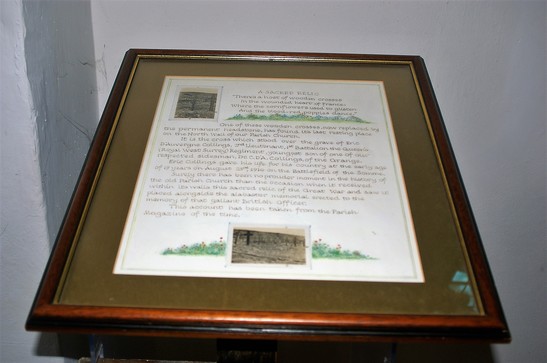 A SACRED RELIC
"There's a host of wooden crosses
In the wounded heart of France
Where the cornflowers used to glisten
And the blood-red poppies dance."
One of these wooden crosses now replaced by
the permanent headstone, has found its last resting place
on the North Wall of our Parish Church.
It is the cross which stood over the grave of Eric
Collings, 2nd Lieutenant, 1st Battalion the Queen's
(Royal West Surrey) Regiment, youngest son of one of our
respected Alderman, Dr. C.D.A. Collings, of the Grange.
Eric Collings gave his life for his country at the early age
of years on August on the Battlefield of the Somme.
Surely there has been no prouder moment in the history of
the old Parish Church than the occasion when it received
within its walls this sacred relic of the Great War and saw it
placed alongside the alabaster memorial erected to the
memory of that gallant British Officer.
This account has been taken from the Parish
Magazine of the time.